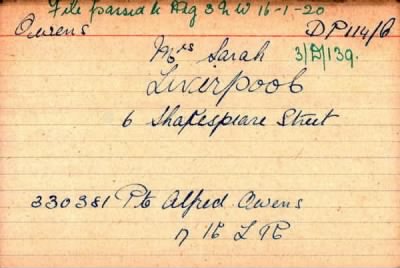 File passed to Reg 3 N W 16-1-20
Owens DP114/6
Mrs Sarah 3/D/139.
Liverpool
6 Shakespeare Street
330381 Pte Alfred Owens